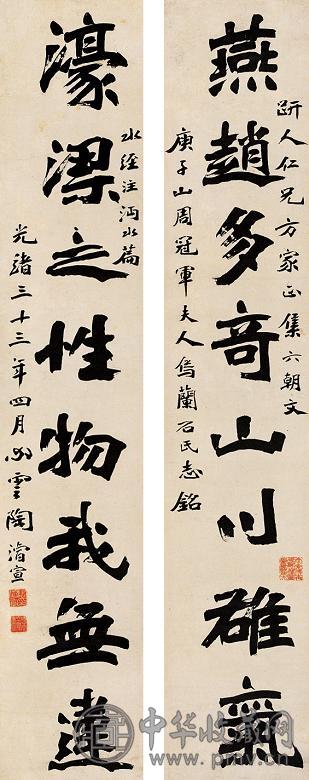 趼人仁兄方家正集六朝文
燕趙多奇山川雄氣
庾子山周冠軍夫人烏蘭石氏志銘
水經注沔水篇
濠梁之性物我無違
光緒三十三年四月心雲陶濬宣
中华收藏网
www.pmv.cn